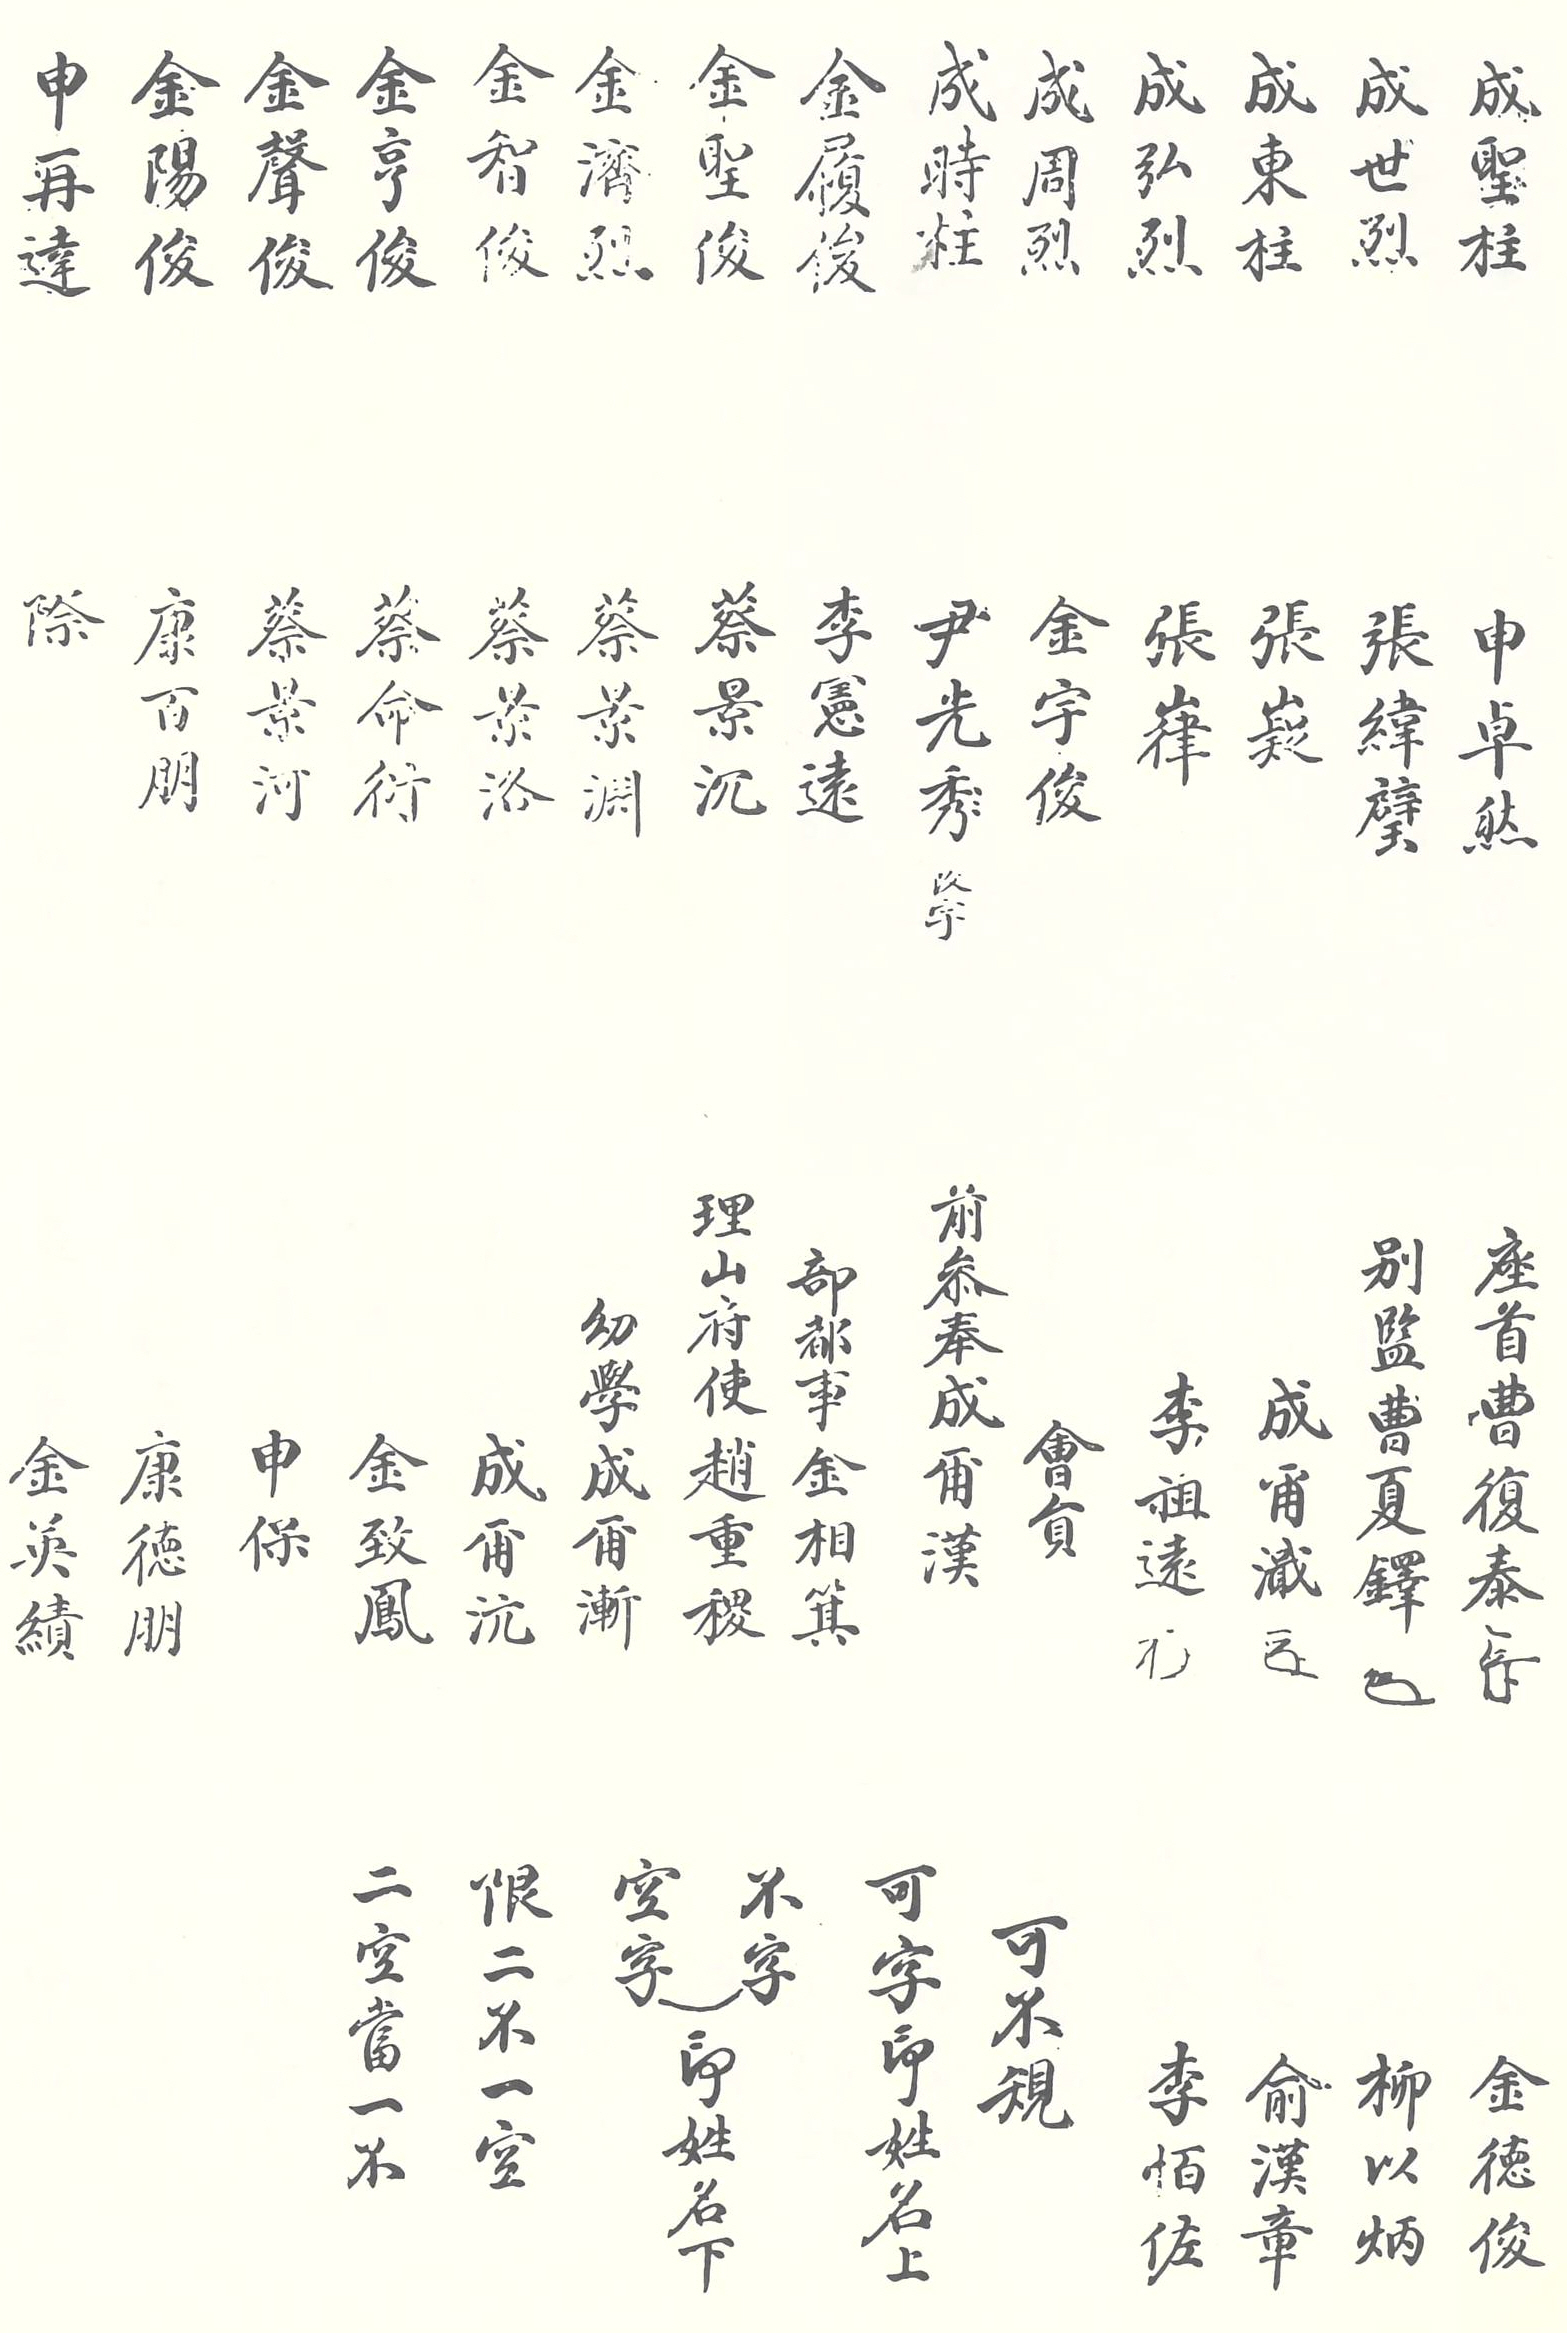 成聖柱
成世烈
成東柱
成弘烈
成周烈
成時柱
金履俊
金聖俊
金濟烈
金智俊
金亨俊
金聲俊
金陽俊
申再達
申卓然
張緯璧
張嶷
張嵂
金宇俊
尹光秀
李憲遠
蔡景沉
蔡景淵
蔡景浴
蔡命衍
蔡景河
康百朋
除
座首曺復泰
別監曺夏鐸
成甯濈
李祖遠
會員
前叅奉成甯漢
部都事金相箕
理山府使趙重稷
幼學成甯漸
成甯沆
金致鳳
申保
康德朋
金英績
金德俊
柳以炳
俞漢章
李栢佐
可不規
可字印姓名上
不字
空字
印姓名下
限二不一空
二空當一不